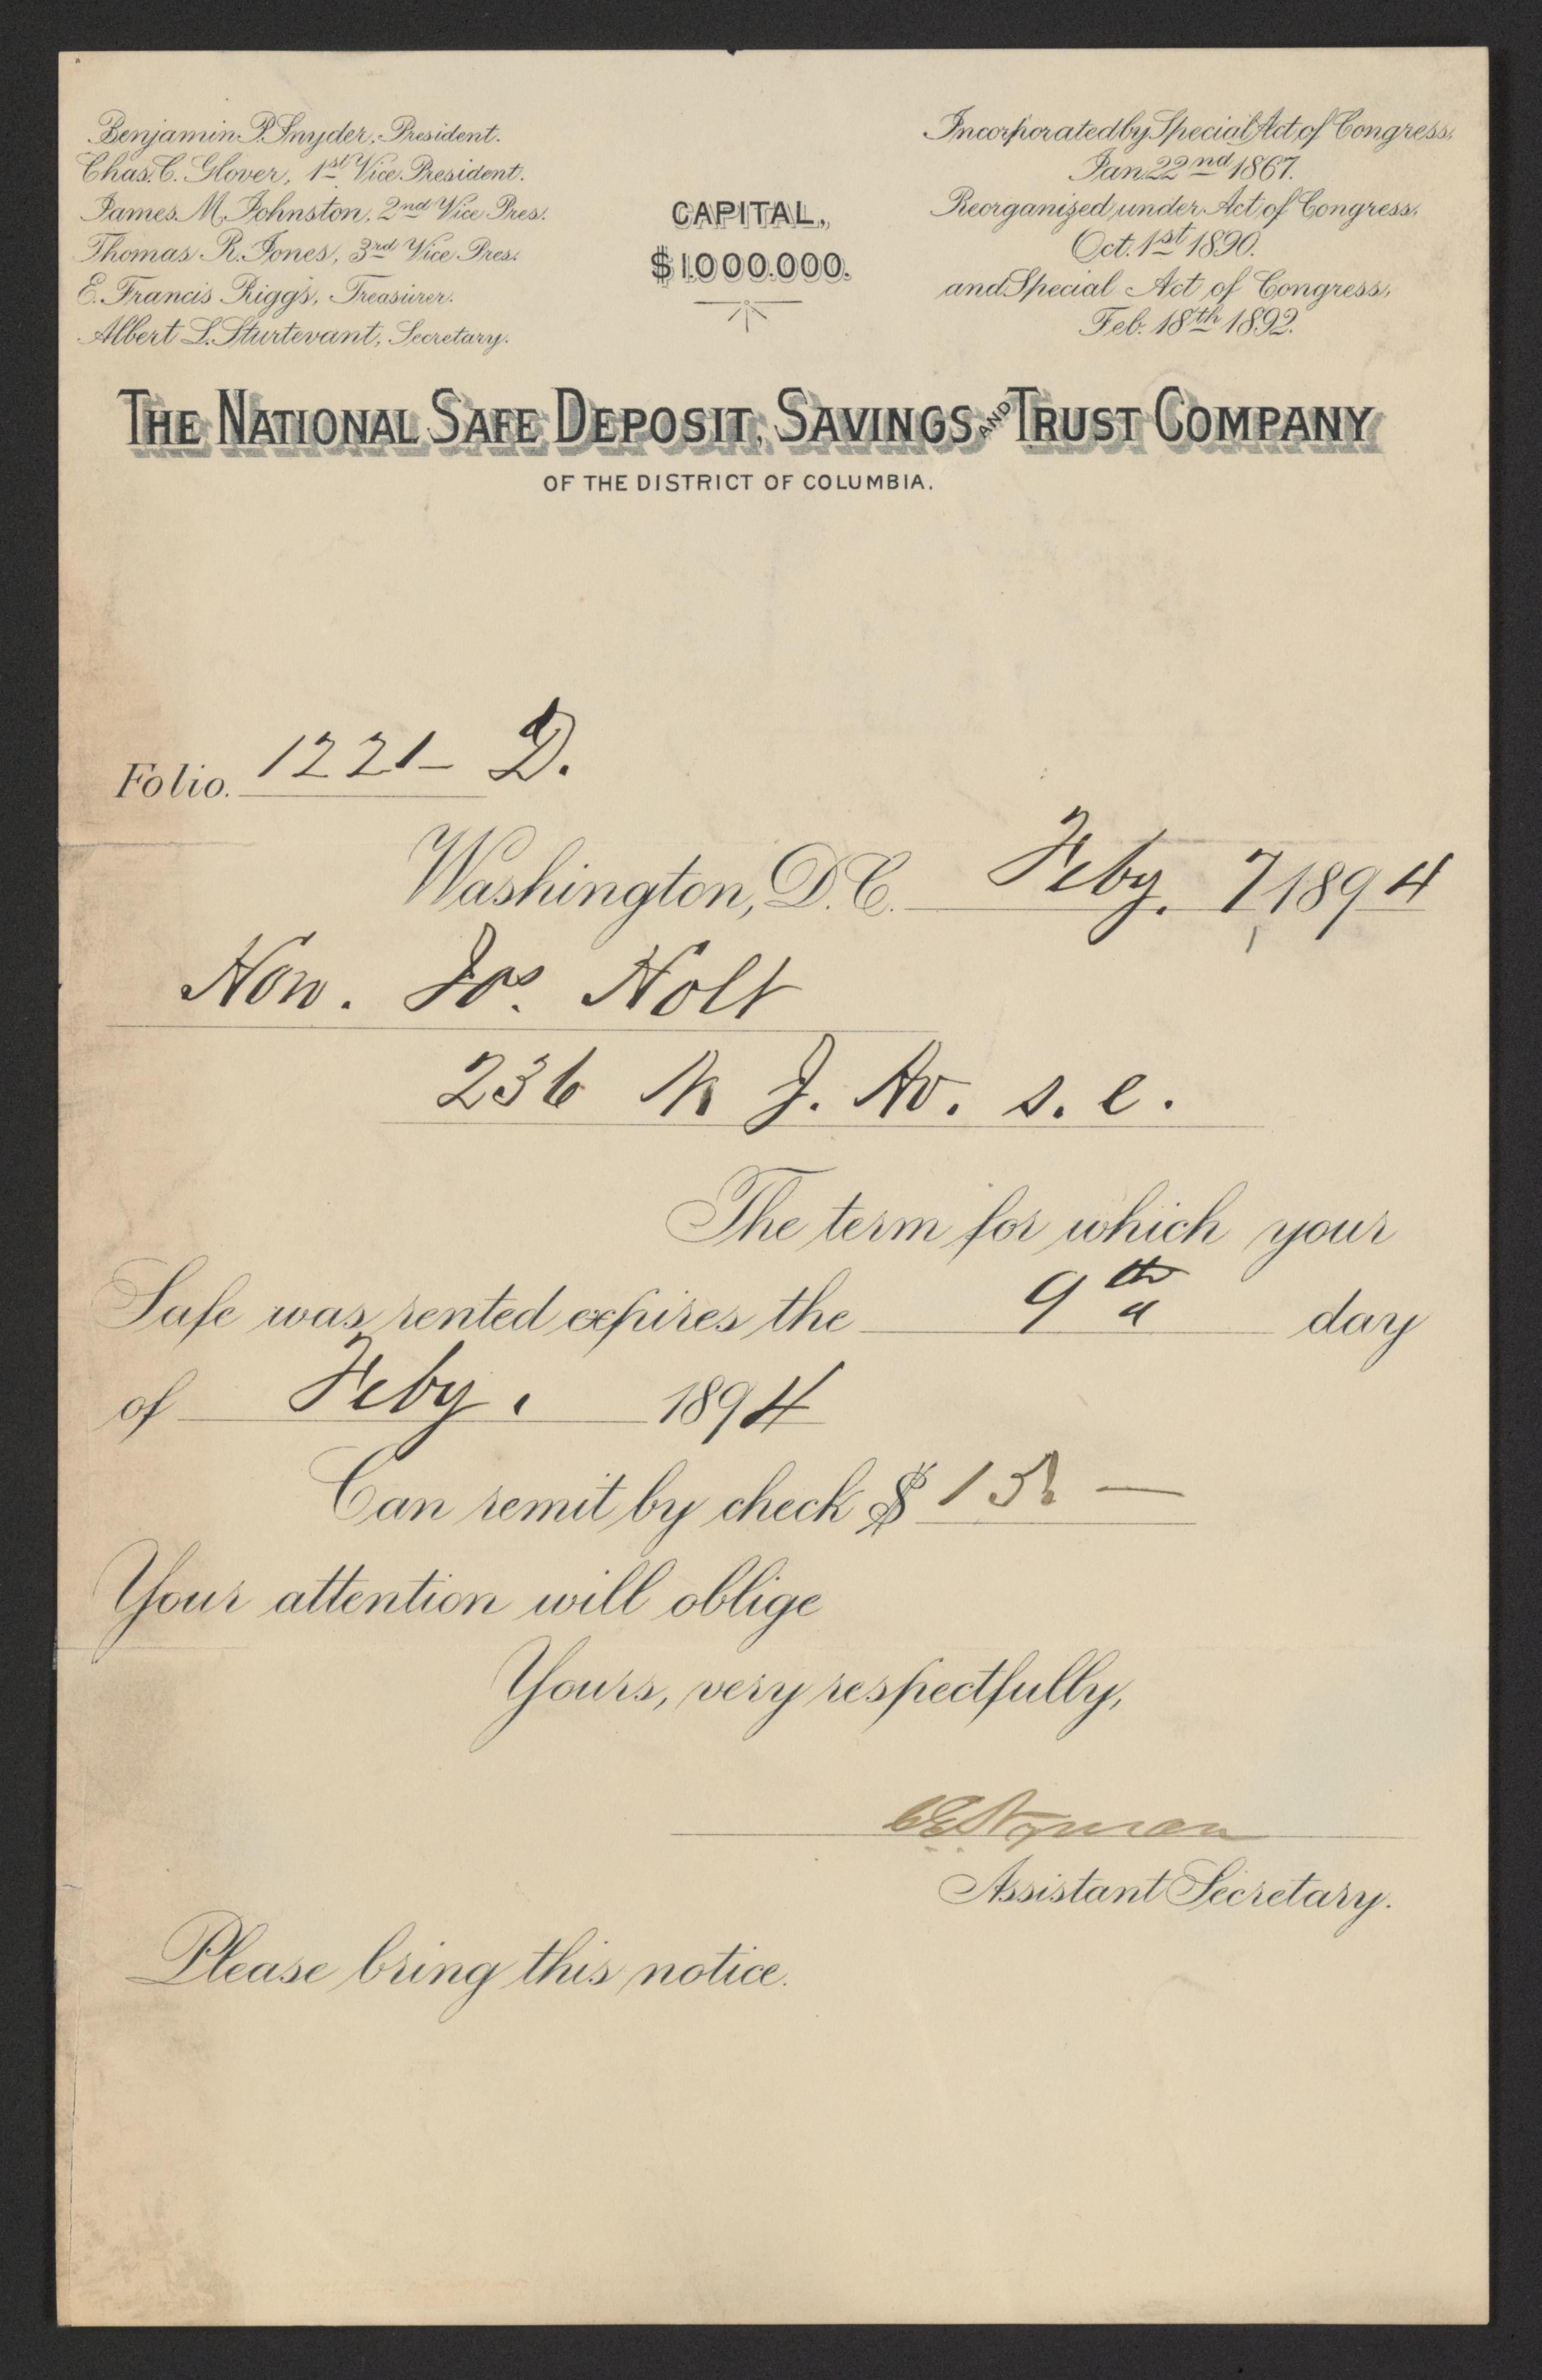 Benjamin P. Snyder, President.
Chas. C. Glover, 1st Vice President.
James M. Johnston, 2nd Vice Pres.
Thomas R. Jones, 3rd Vice Pres.
E. Francis Riggs, Treasurer.
Albert L. Sturtevant, Secretary.
CAPITAL,
$1.000.000.
Incorporated by Special Act of Congress,
Jan. 22nd 1867.
Reorganized under Act of Congress,
Oct. 1st 1890.
and Special Act of Congress,
Feb. 18th 1892.
THE NATIONAL SAFE DEPOSIT, SAVINGS AND TRUST COMPANY
OF THE DISTRICT OF COLUMBIA.
Folio. 1221– D.
Washington, D.C. Feby. 7 1894
Hon. Jos. Holt
236 N J. Av. s. e.
The term for which your
Safe was rented expires the 9th day
of Feby. 1894
Can remit by check $ 15 —
Your attention will oblige
Yours, very respectfully,
Assistant Secretary.
Please bring this notice.